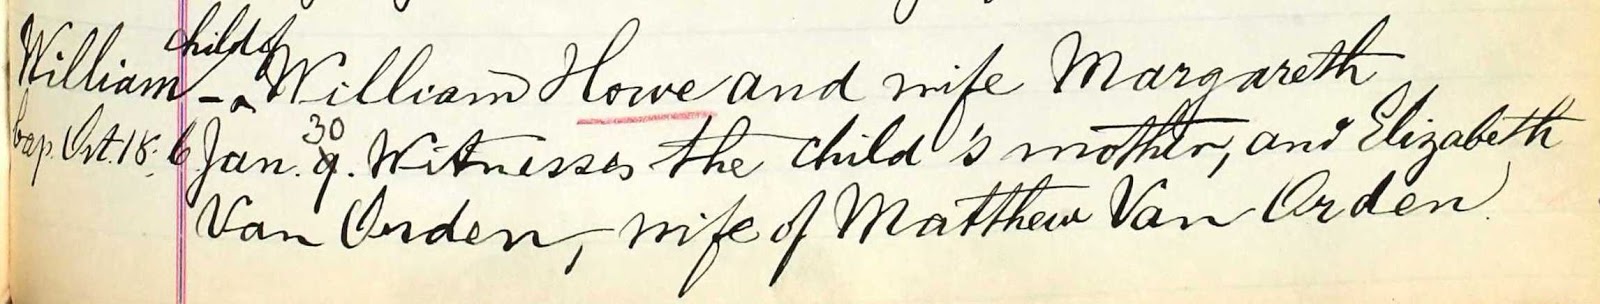 William child of William Howe and wife Margareth
bap. Oct. 18. b Jan. 30 9. Witnesses the child's mother, and Elizabeth
Van Orden, wife of Matthew Van Orden.